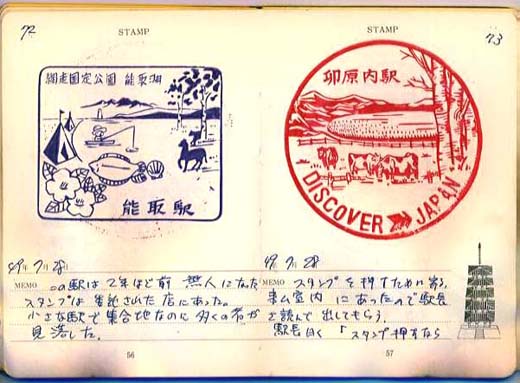 72
STAMP
網走国定公園 能取湖
能取駅
49年7月28日
MEMO この駅は2年ほど前 無人になった
スタンプは委託された店にあった。
小さな駅で集合地なのに多くの者が
見落した。
56
STAMP
73
卯原内駅
DISCOVER JAPAN
49 7月28
MEMO スタンプを押すために寄る。
事ム室内にあったので駅長
を読んで出してもらう。
駅長曰く「スタンプ押すなら
57